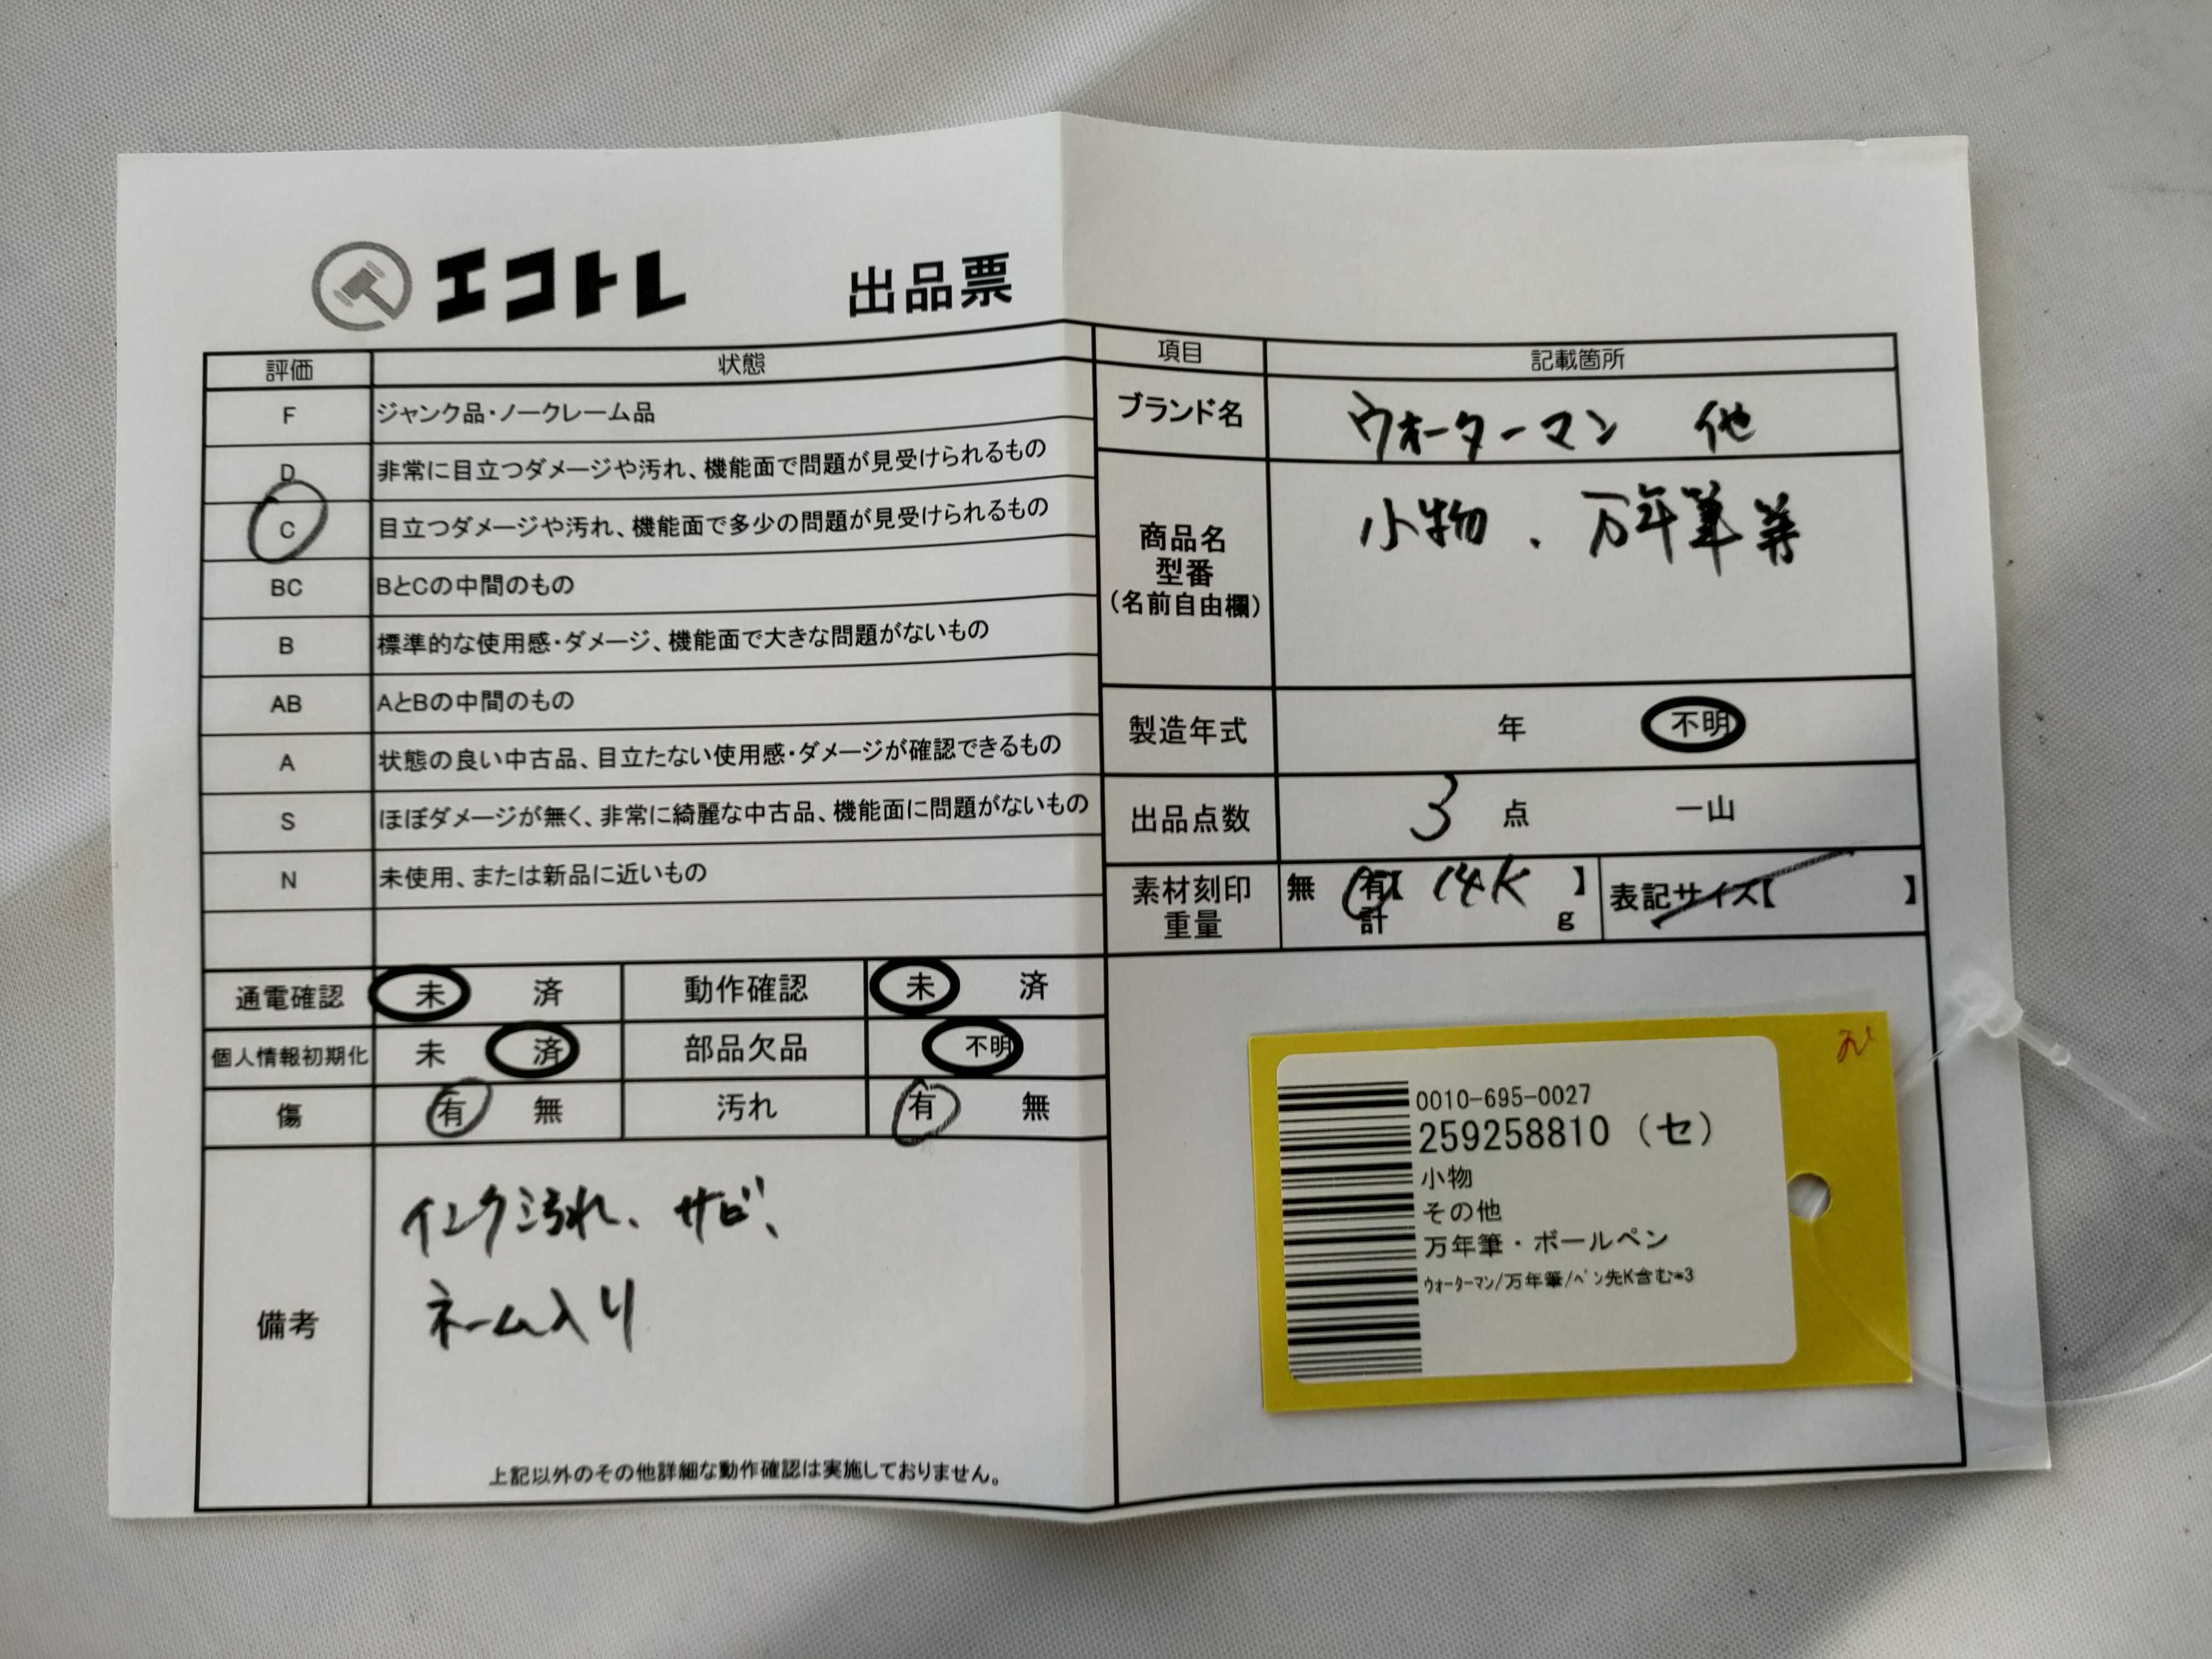 エコトレ 出品票
評価 状態
F ジャンク品・ノークレーム品
D 非常に目立つダメージや汚れ、機能面で問題が見受けられるもの
C 目立つダメージや汚れ、機能面で多少の問題が見受けられるもの
BC BとCの中間のもの
B 標準的な使用感・ダメージ、機能面で大きな問題がないもの
AB AとBの中間のもの
A 状態の良い中古品、目立たない使用感・ダメージが確認できるもの
S ほぼダメージが無く、非常に綺麗な中古品、機能面に問題がないもの
N 未使用、または新品に近いもの
通電確認 未 済 動作確認 未 済
個人情報初期化 未 済 部品欠品 不明
傷 有 無 汚れ 有 無
備考
インク汚れ、サビ、
ネーム入り
上記以外のその他詳細な動作確認は実施しておりません。
項目 記載箇所
ブランド名 ウォーターマン 他
商品名
型番
(名前自由欄)
小物、万年筆等
製造年式 年 不明
出品点数 3 点 一山
素材刻印
重量
無 有【 14K 】
計 g
表記サイズ【 】
0010-695-0027
259258810 (セ)
小物
その他
万年筆・ボールペン
ｳｫｰﾀｰﾏﾝ/万年筆/ﾍﾟﾝ先K含む*3